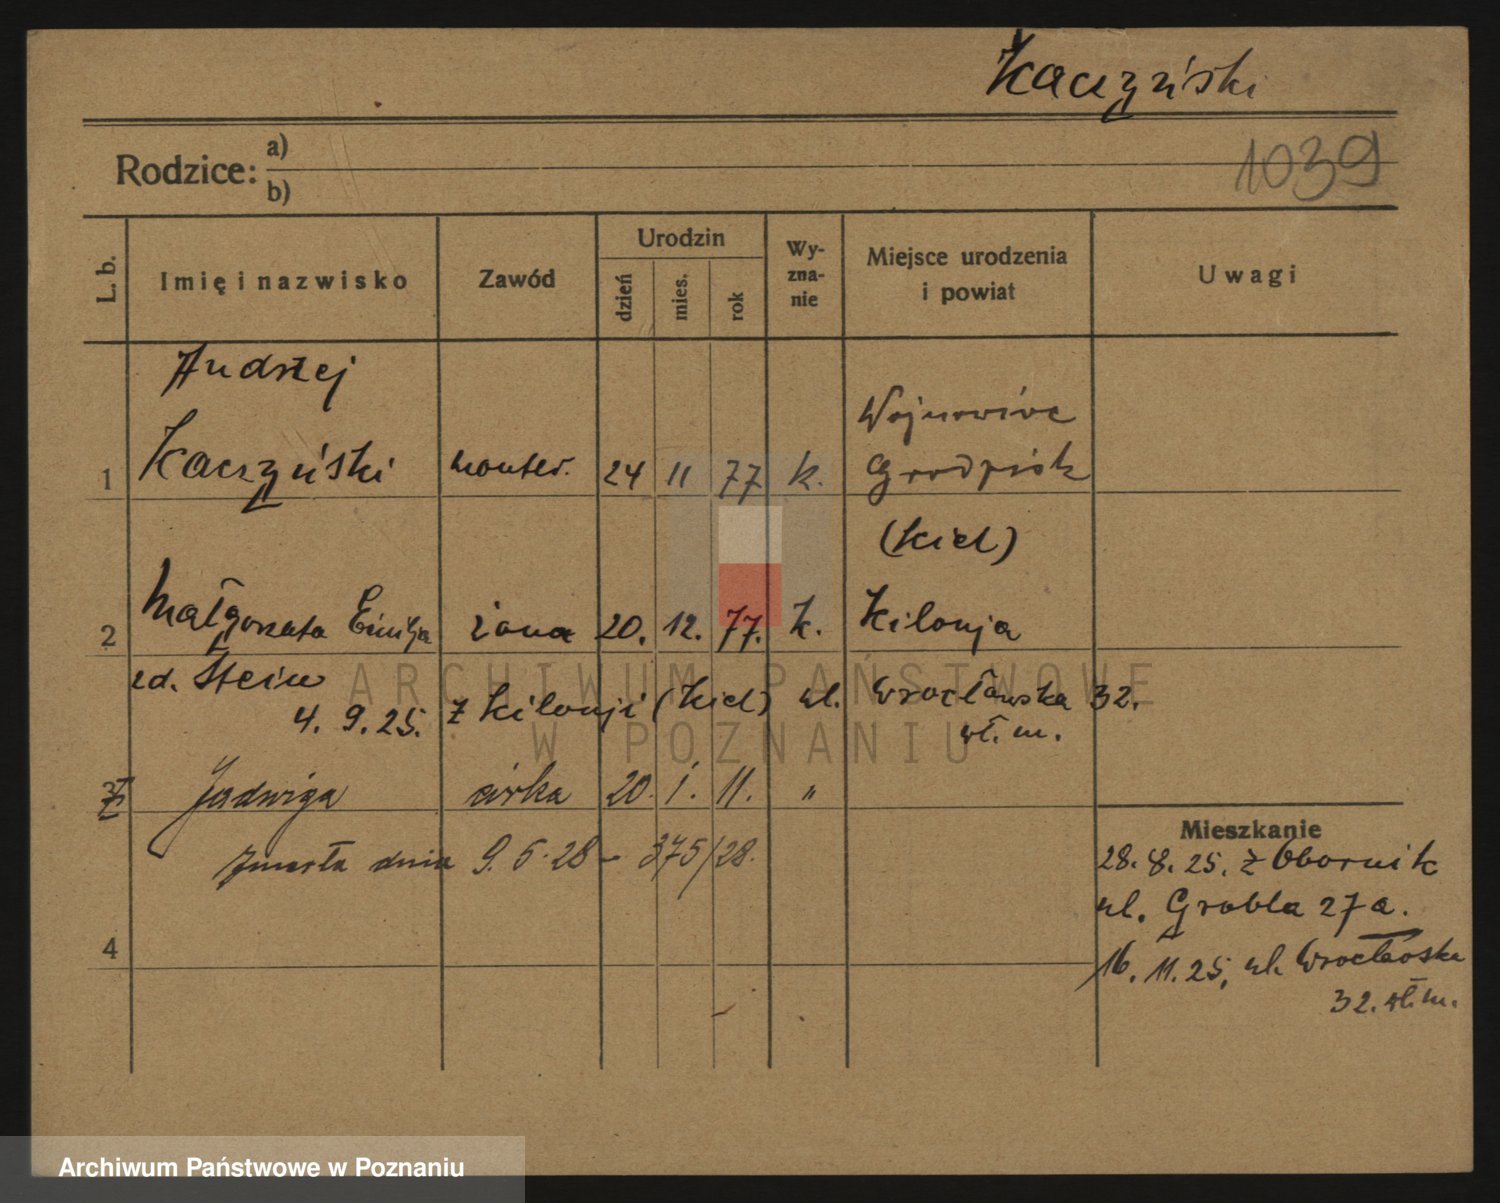 Kaczyński
1039
Rodzice: a)
b)
L. b. Imię i nazwisko Zawód Urodzin dzień mies. rok Wyznanie Miejsce urodzenia i powiat Uwagi
Andrzej
1 Kaczyński monter. 24 11 77 k. Wojnowice Grodzisk
(Kiel)
2 Małgorzata Emilja żona 20. 12. 77. k. Kilonja
zd. Stein
4. 9. 25. z Kilonji (Kiel) ul. Wrocławska 32.
wł. m.
3 Jadwiga córka 20. 1. 11. "
zmarła dnia 9. 5. 28 - 375/28.
4
Mieszkanie
28. 8. 25. z Obornik
ul. Grobla 27a.
16. 11. 25, ul. Wrocławska
32. wł. m.
ARCHIWUM PAŃSTWOWE
W POZNANIU
Archiwum Państwowe w Poznaniu